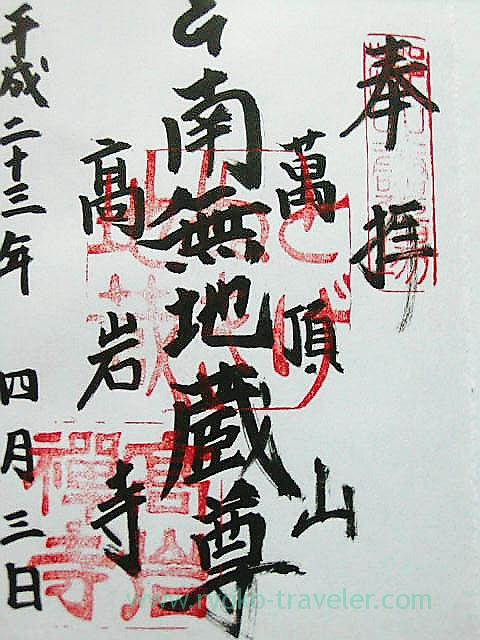 奉拝
萬頂山
南無地蔵尊
髙岩寺
平成二十三年 四月三日
高岩
禪寺
www.ryoko-traveler.com